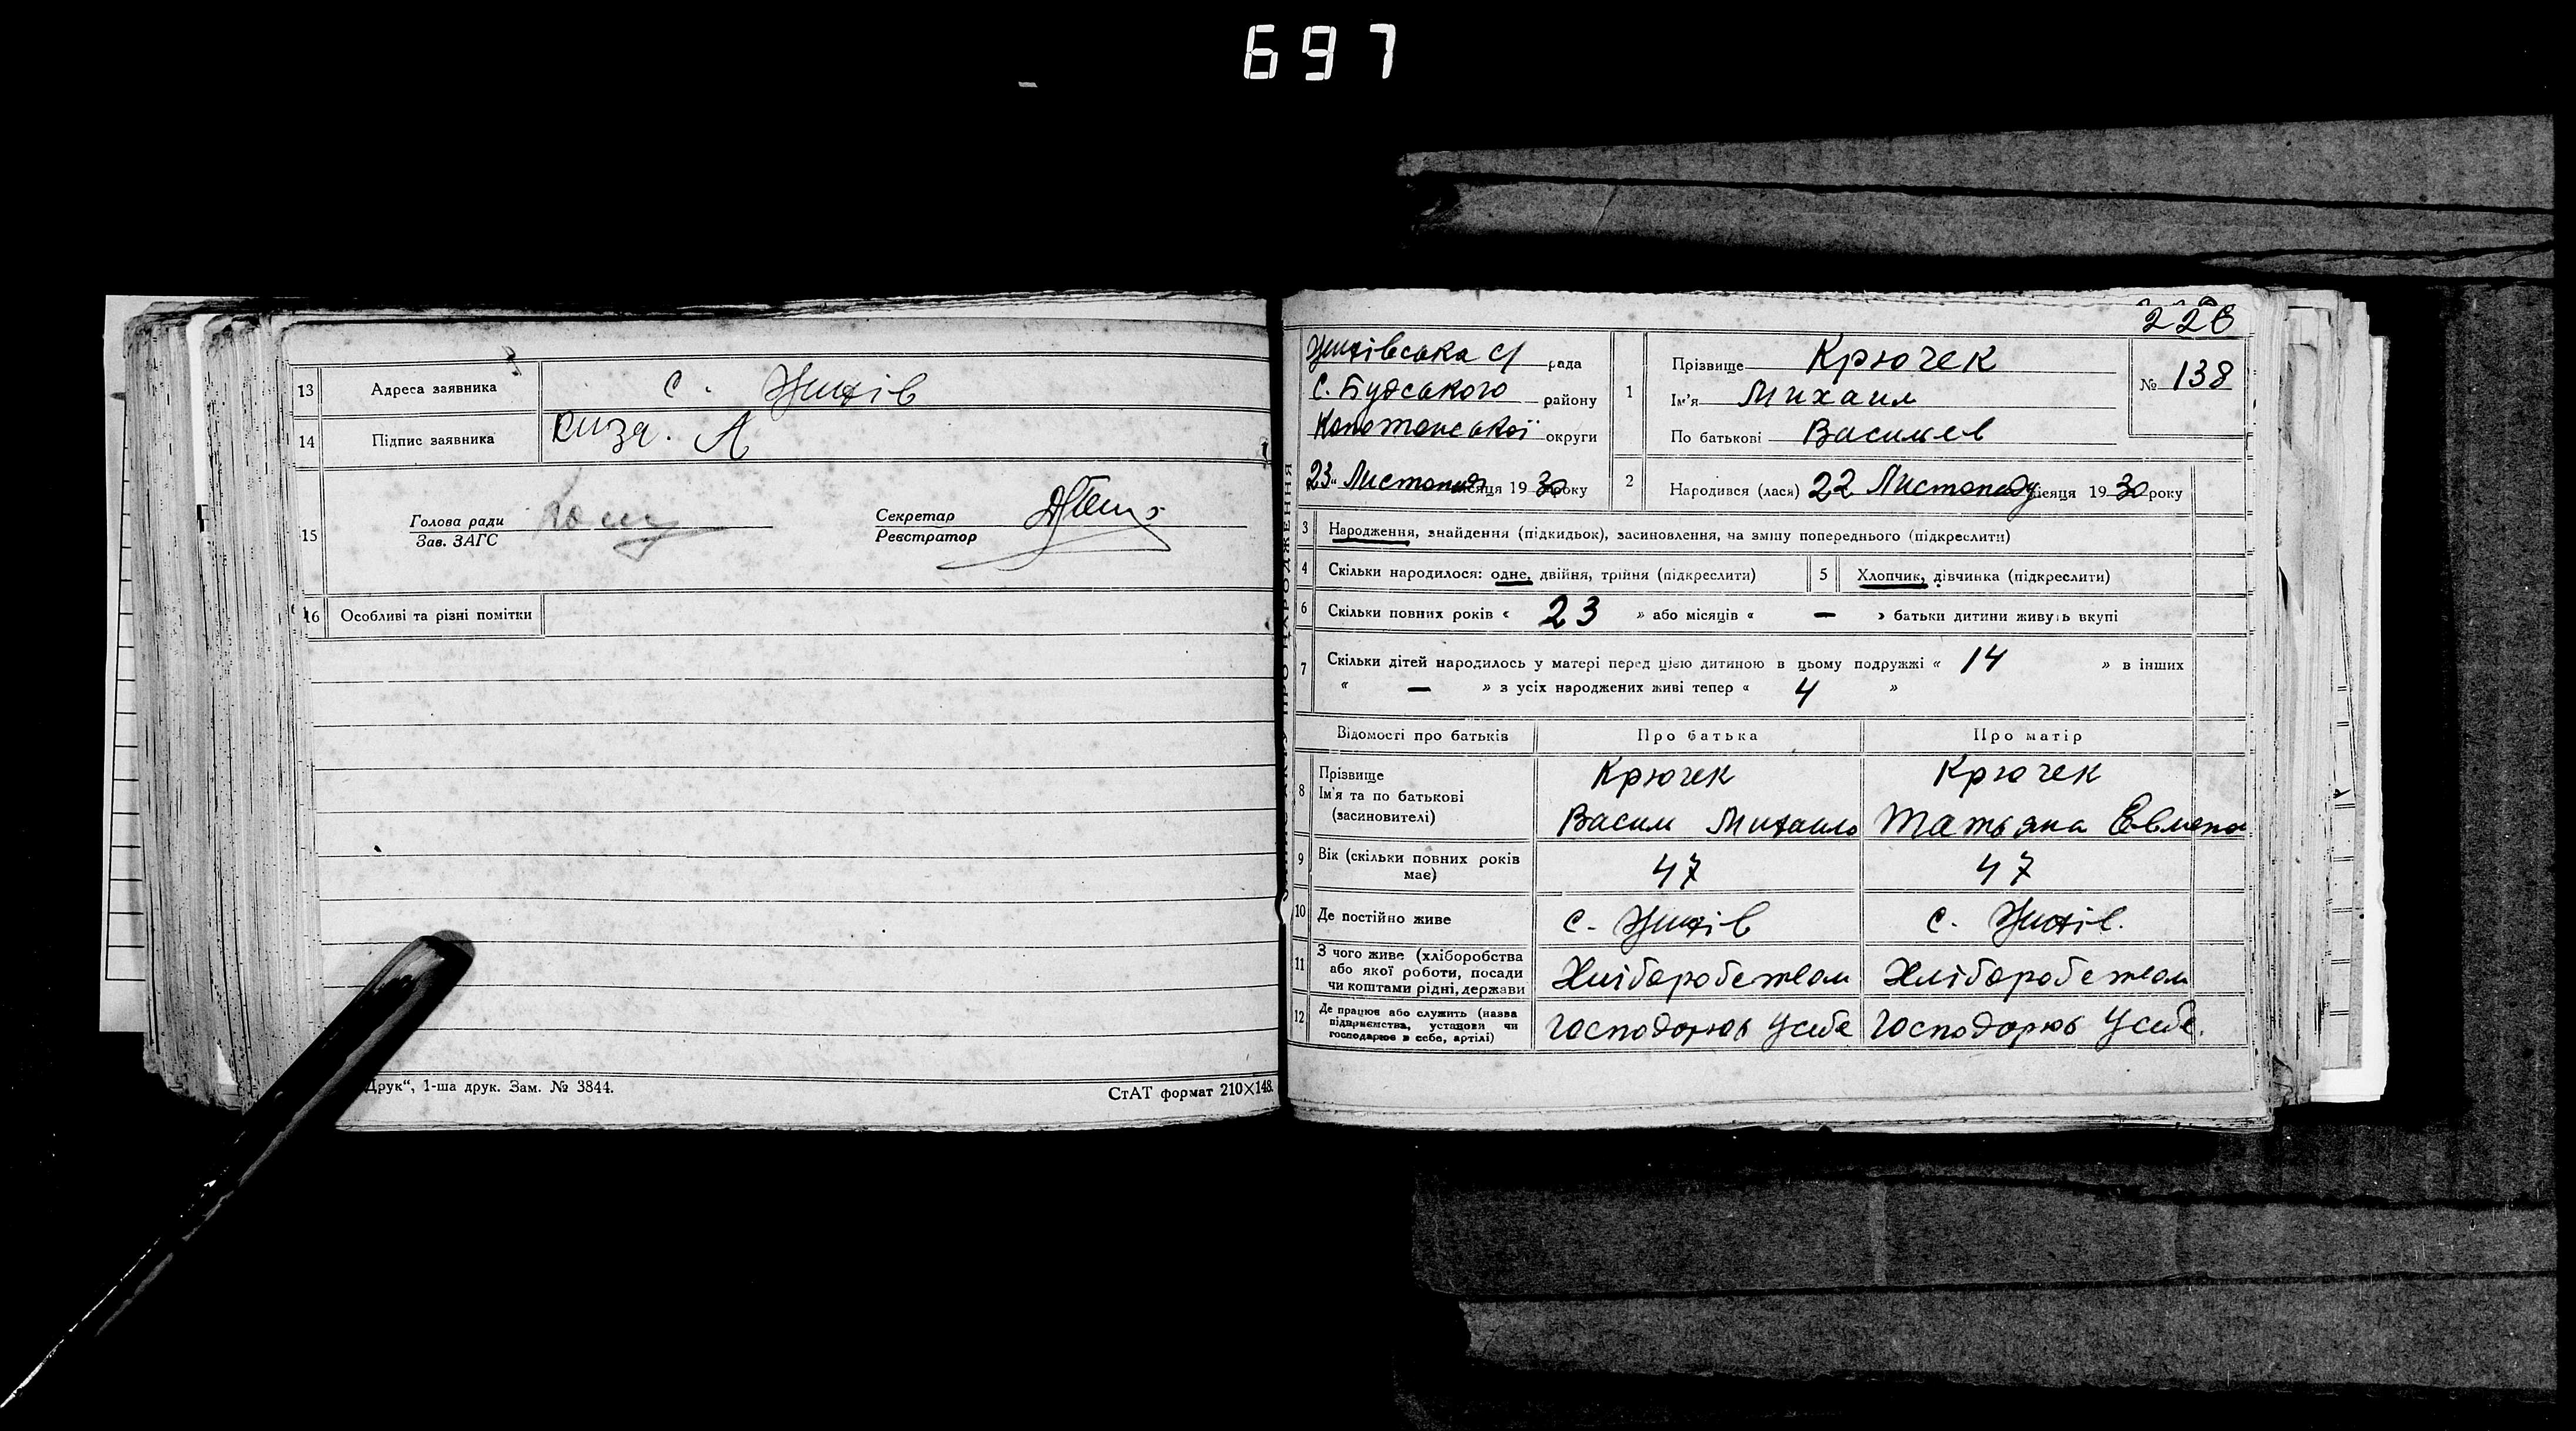 697
13 Адреса заявника с. Жихів
14 Підпис заявника
15 Голова ради
Зав. ЗАГС
Секретар
Реєстратор
16 Особливі та різні помітки
Друк“, 1-ша друк. Зам. № 3844.
СтАТ формат 210×148.
226
Жихівська с/ рада
С. Будського району
Конотопської округи
23 „ Листопада місяця 1930 року
1 Прізвище Крючек
Ім’я Михаил
По батькові Васильев
№ 138
2 Народився (лася) 22 Листопаду місяця 1930 року
3 Народження, знайдення (підкидьок), засиновлення, на зміну попереднього (підкреслити)
4 Скільки народилося: одне, двійня, трійня (підкреслити)
5 Хлопчик, дівчинка (підкреслити)
6 Скільки повних років « 23 » або місяців « — » батьки дитини живуть вкупі
7 Скільки дітей народилось у матері перед цією дитиною в цьому подружжі « 14 » в інших
« — » з усіх народжених живі тепер « 4 »
Відомості про батьків Про батька Про матір
8 Прізвище Ім’я та по батькові (засиновителі)
Крючек Крючек
Васил Михаило Татьяна Евмена
9 Вік (скільки повних років має) 47 47
10 Де постійно живе с. Жихів с. Жихів.
11 З чого живе (хліборобства або якої роботи, посади чи коштами рідні, держави Хліборобством Хліборобством
12 Де працює або служить (назва підприємства, установи чи господарює в себе, артілі) Господорюв У себе Господорюв У себе.